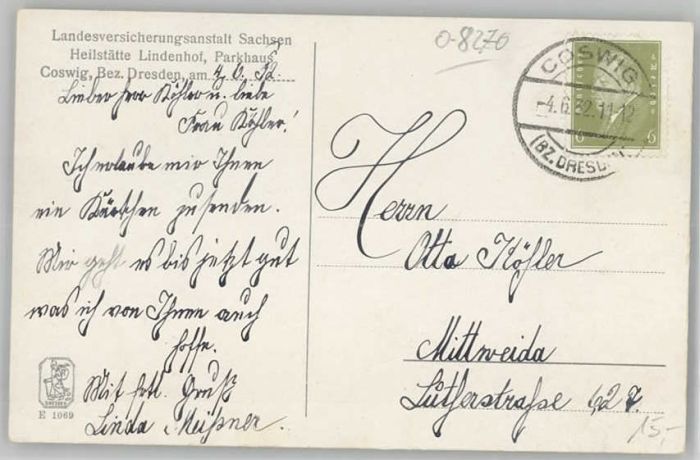 Landesversicherungsanstalt Sachsen
Heilstätte Lindenhof, Parkhaus
Coswig, Bez. Dresden, am 4.6.32
Lieber Herr Köhler u. liebe
Frau Köhler!
Ich erlaube mir Ihnen
ein Kärtchen zusenden.
Mir geht es bis jetzt gut
was ich von Ihnen auch
hoffe.
Mit frdl. Gruß
Linda Meißner.
E 1069
0-8270
COSWIG
-4.6.32.11-12
(BZ. DRESDEN)
6 6
Herrn
Otto Köhler
Mittweida
Lutherstraße
15,-